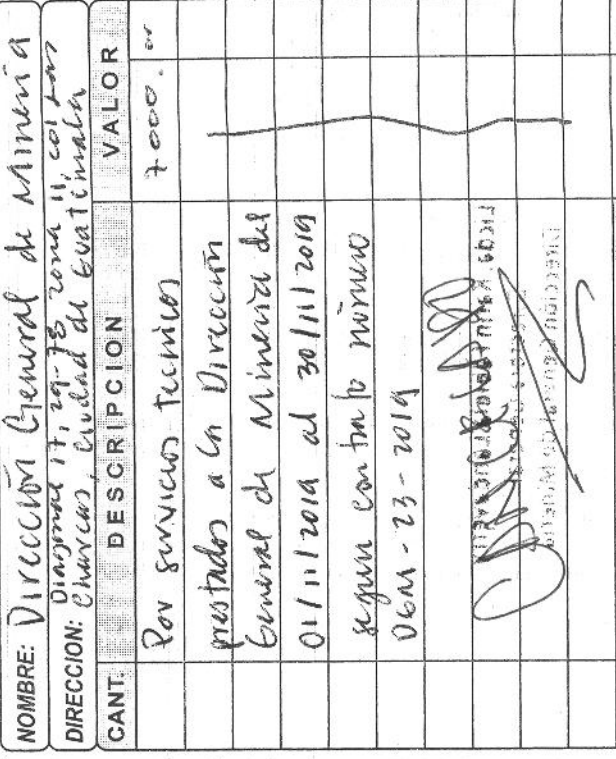 NOMBRE: Dirección General de Minería
DIRECCION: Diagonal 17, 29-78 zona 11, col Las
Charcas, Ciudad de Guatemala
CANT. DESCRIPCION VALOR
Por servicios tecnicos 7000.
prestados a la Dirección
General de Minería del
01/11/2019 al 30/11/2019
según contrato número
DGM-23-2019
Dirección General de Minería